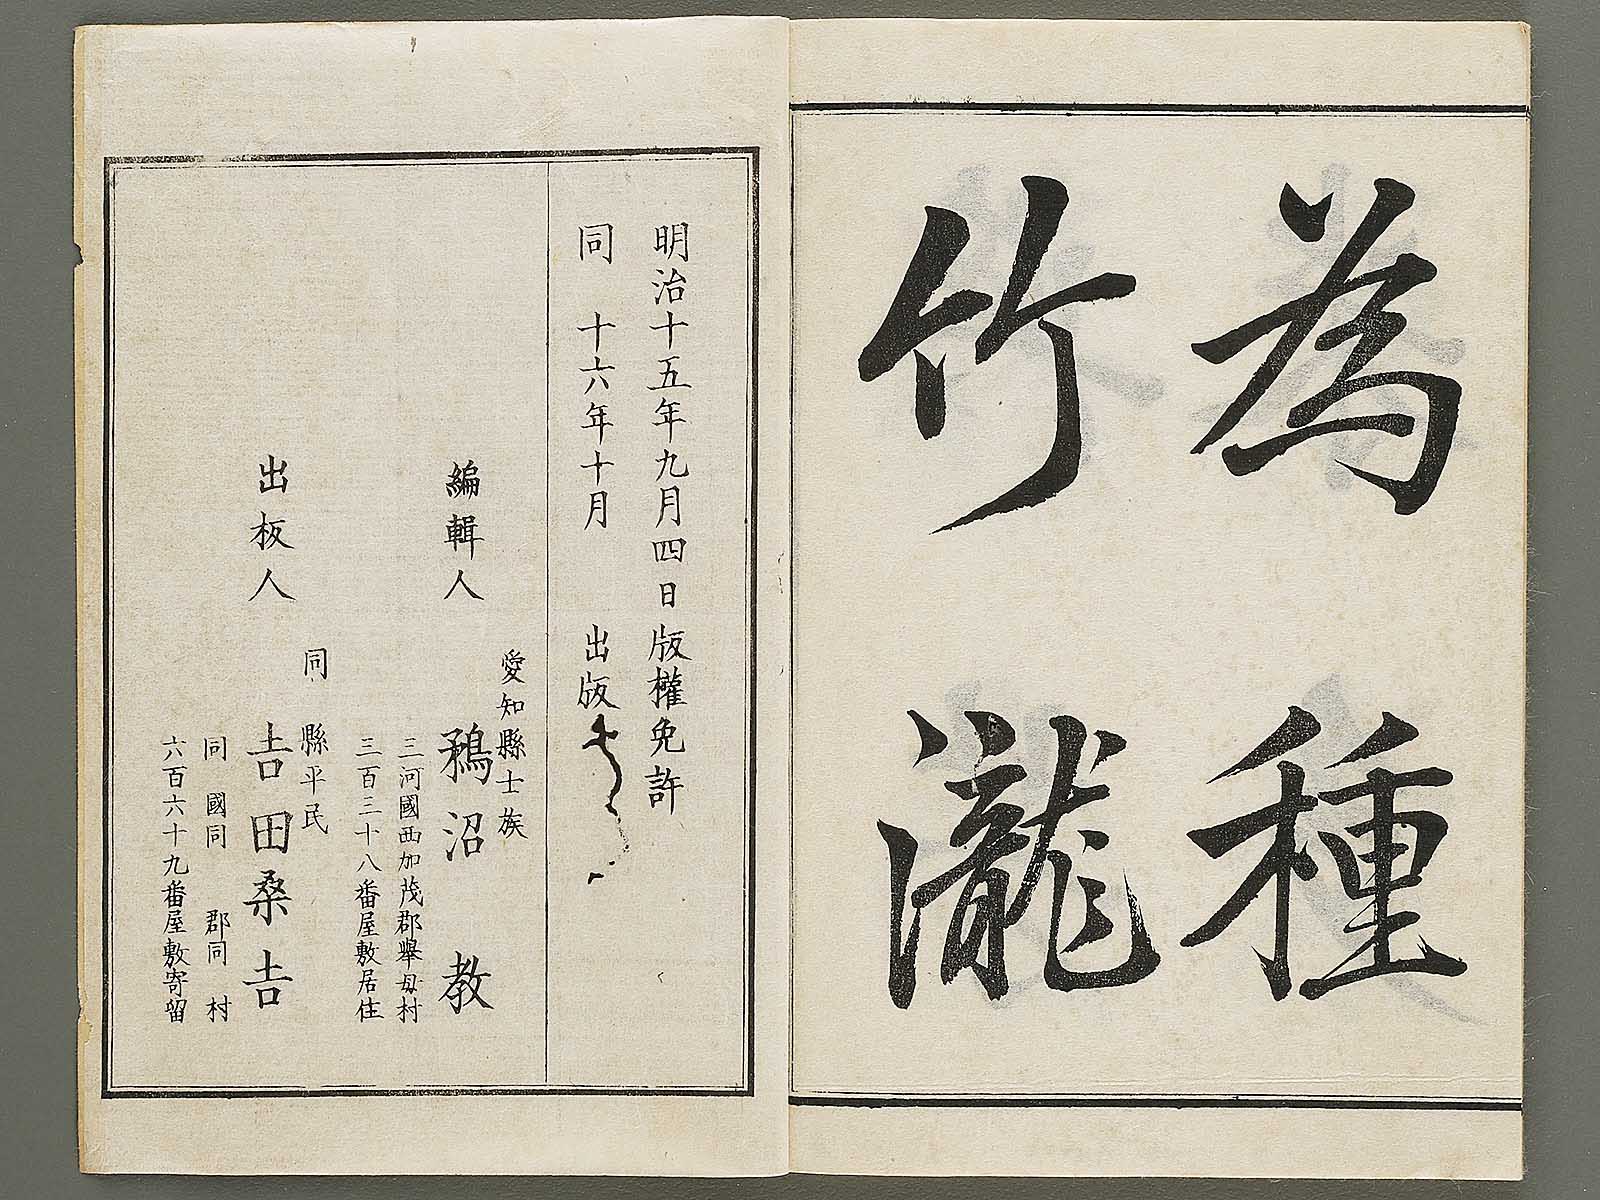 為種
竹瀧
明治十五年九月四日版權免許
同十六年十月出版
愛知縣士族
編輯人 鵜沼教
三河國西加茂郡擧母村
三百三十八番屋敷居住
同縣平民
出板人 𠮷田桑𠮷
同國同郡同村
六百六十九番屋敷寄留